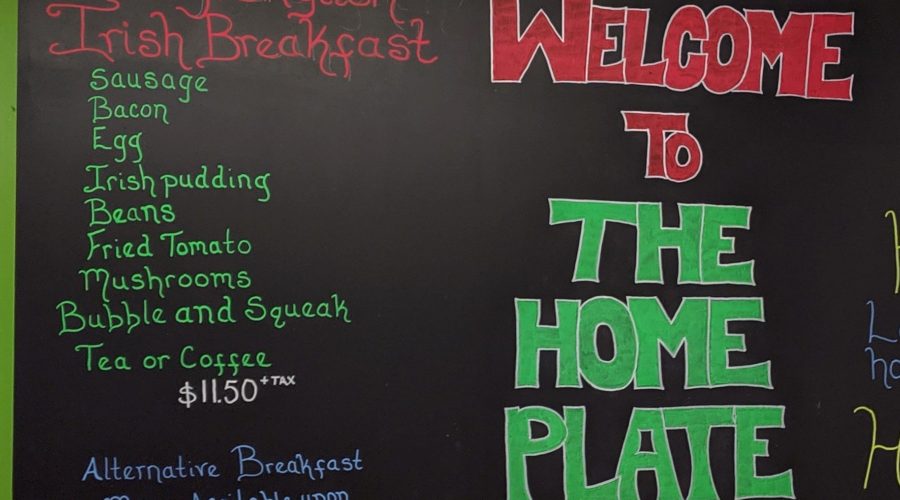 Irish Breakfast
Sausage
Bacon
Egg
Irish pudding
Beans
Fried Tomato
Mushrooms
Bubble and Squeak
Tea or Coffee
$11.50 + TAX
Alternative Breakfast
WELCOME
TO
THE
HOME
PLATE